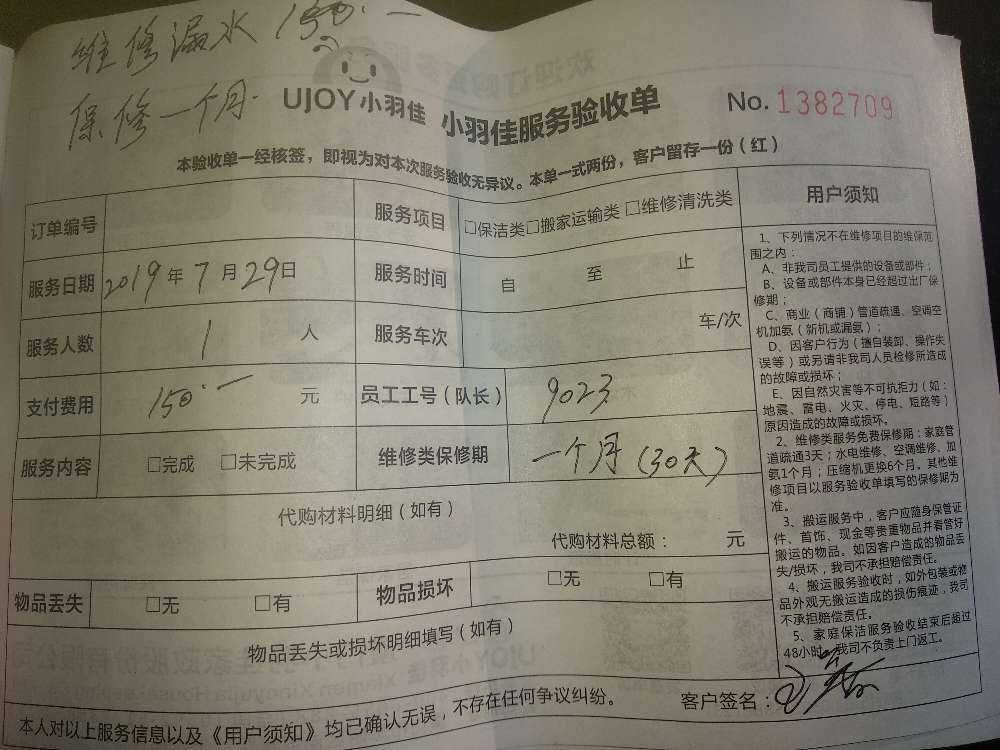 维修漏水 150.一
保修一个月.
UJOY小羽佳 小羽佳服务验收单 No. 1382709
本验收单一经核签，即视为对本次服务验收无异议。本单一式两份，客户留存一份（红）
订单编号 服务项目 □保洁类□搬家运输类 □维修清洗类
服务日期 2019年7月29日 服务时间 自 至 止
服务人数 1 人 服务车次 车/次
支付费用 150.一 元 员工工号（队长） 9023
服务内容 □完成 □未完成 维修类保修期 一个月（30天）
代购材料明细（如有）
代购材料总额： 元
物品丢失 □无 □有 物品损坏 □无 □有
物品丢失或损坏明细填写（如有）
用户须知
1、下列情况不在维修项目的维保范
围之内：
A、非我司员工提供的设备或部件；
B、设备或部件本身已经超过出厂保
修期；
C、商业（商铺）管道疏通、空调空
机加氨（新机或漏氨）；
D、因客户行为（擅自装卸、操作失
误等）或另请非我司人员检修所造成
的故障或损坏；
E、因自然灾害等不可抗拒力（如：
地震、雷电、火灾、停电、短路等）
原因造成的故障或损坏。
2、维修类服务免费保修期：家庭管
道疏通3天；水电维修、空调维修、加
氨1个月；压缩机更换6个月。其他维
修项目以服务验收单填写的保修期为
准。
3、搬运服务中，客户应随身保管证
件、首饰、现金等贵重物品并看管好
搬运的物品。如因客户造成的物品丢
失/损坏，我司不承担赔偿责任。
4、搬运服务验收时，如外包装或物
品外观无搬运造成的损伤痕迹，我司
不承担赔偿责任。
5、家庭保洁服务验收结束后超过
48小时，我司不负责上门返工。
客户签名：
本人对以上服务信息以及《用户须知》均已确认无误，不存在任何争议纠纷。